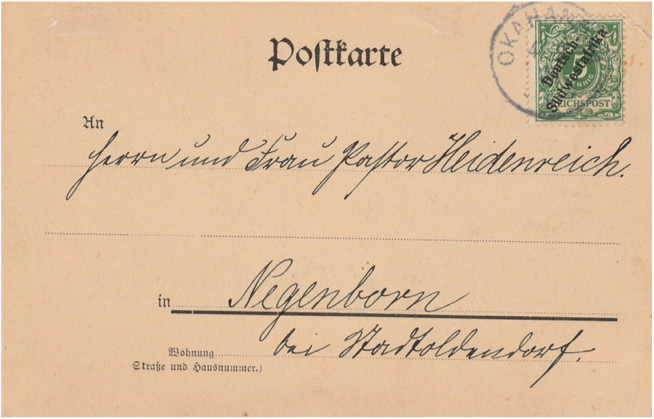 Postkarte
OKAHAN
Deutsch-
Südwestafrika
REICHSPOST
An
Herrn und Frau Pastor Heidenreich.
in Negenborn
Wohnung bei Stadtoldendorf.
Straße und Hausnummer.)